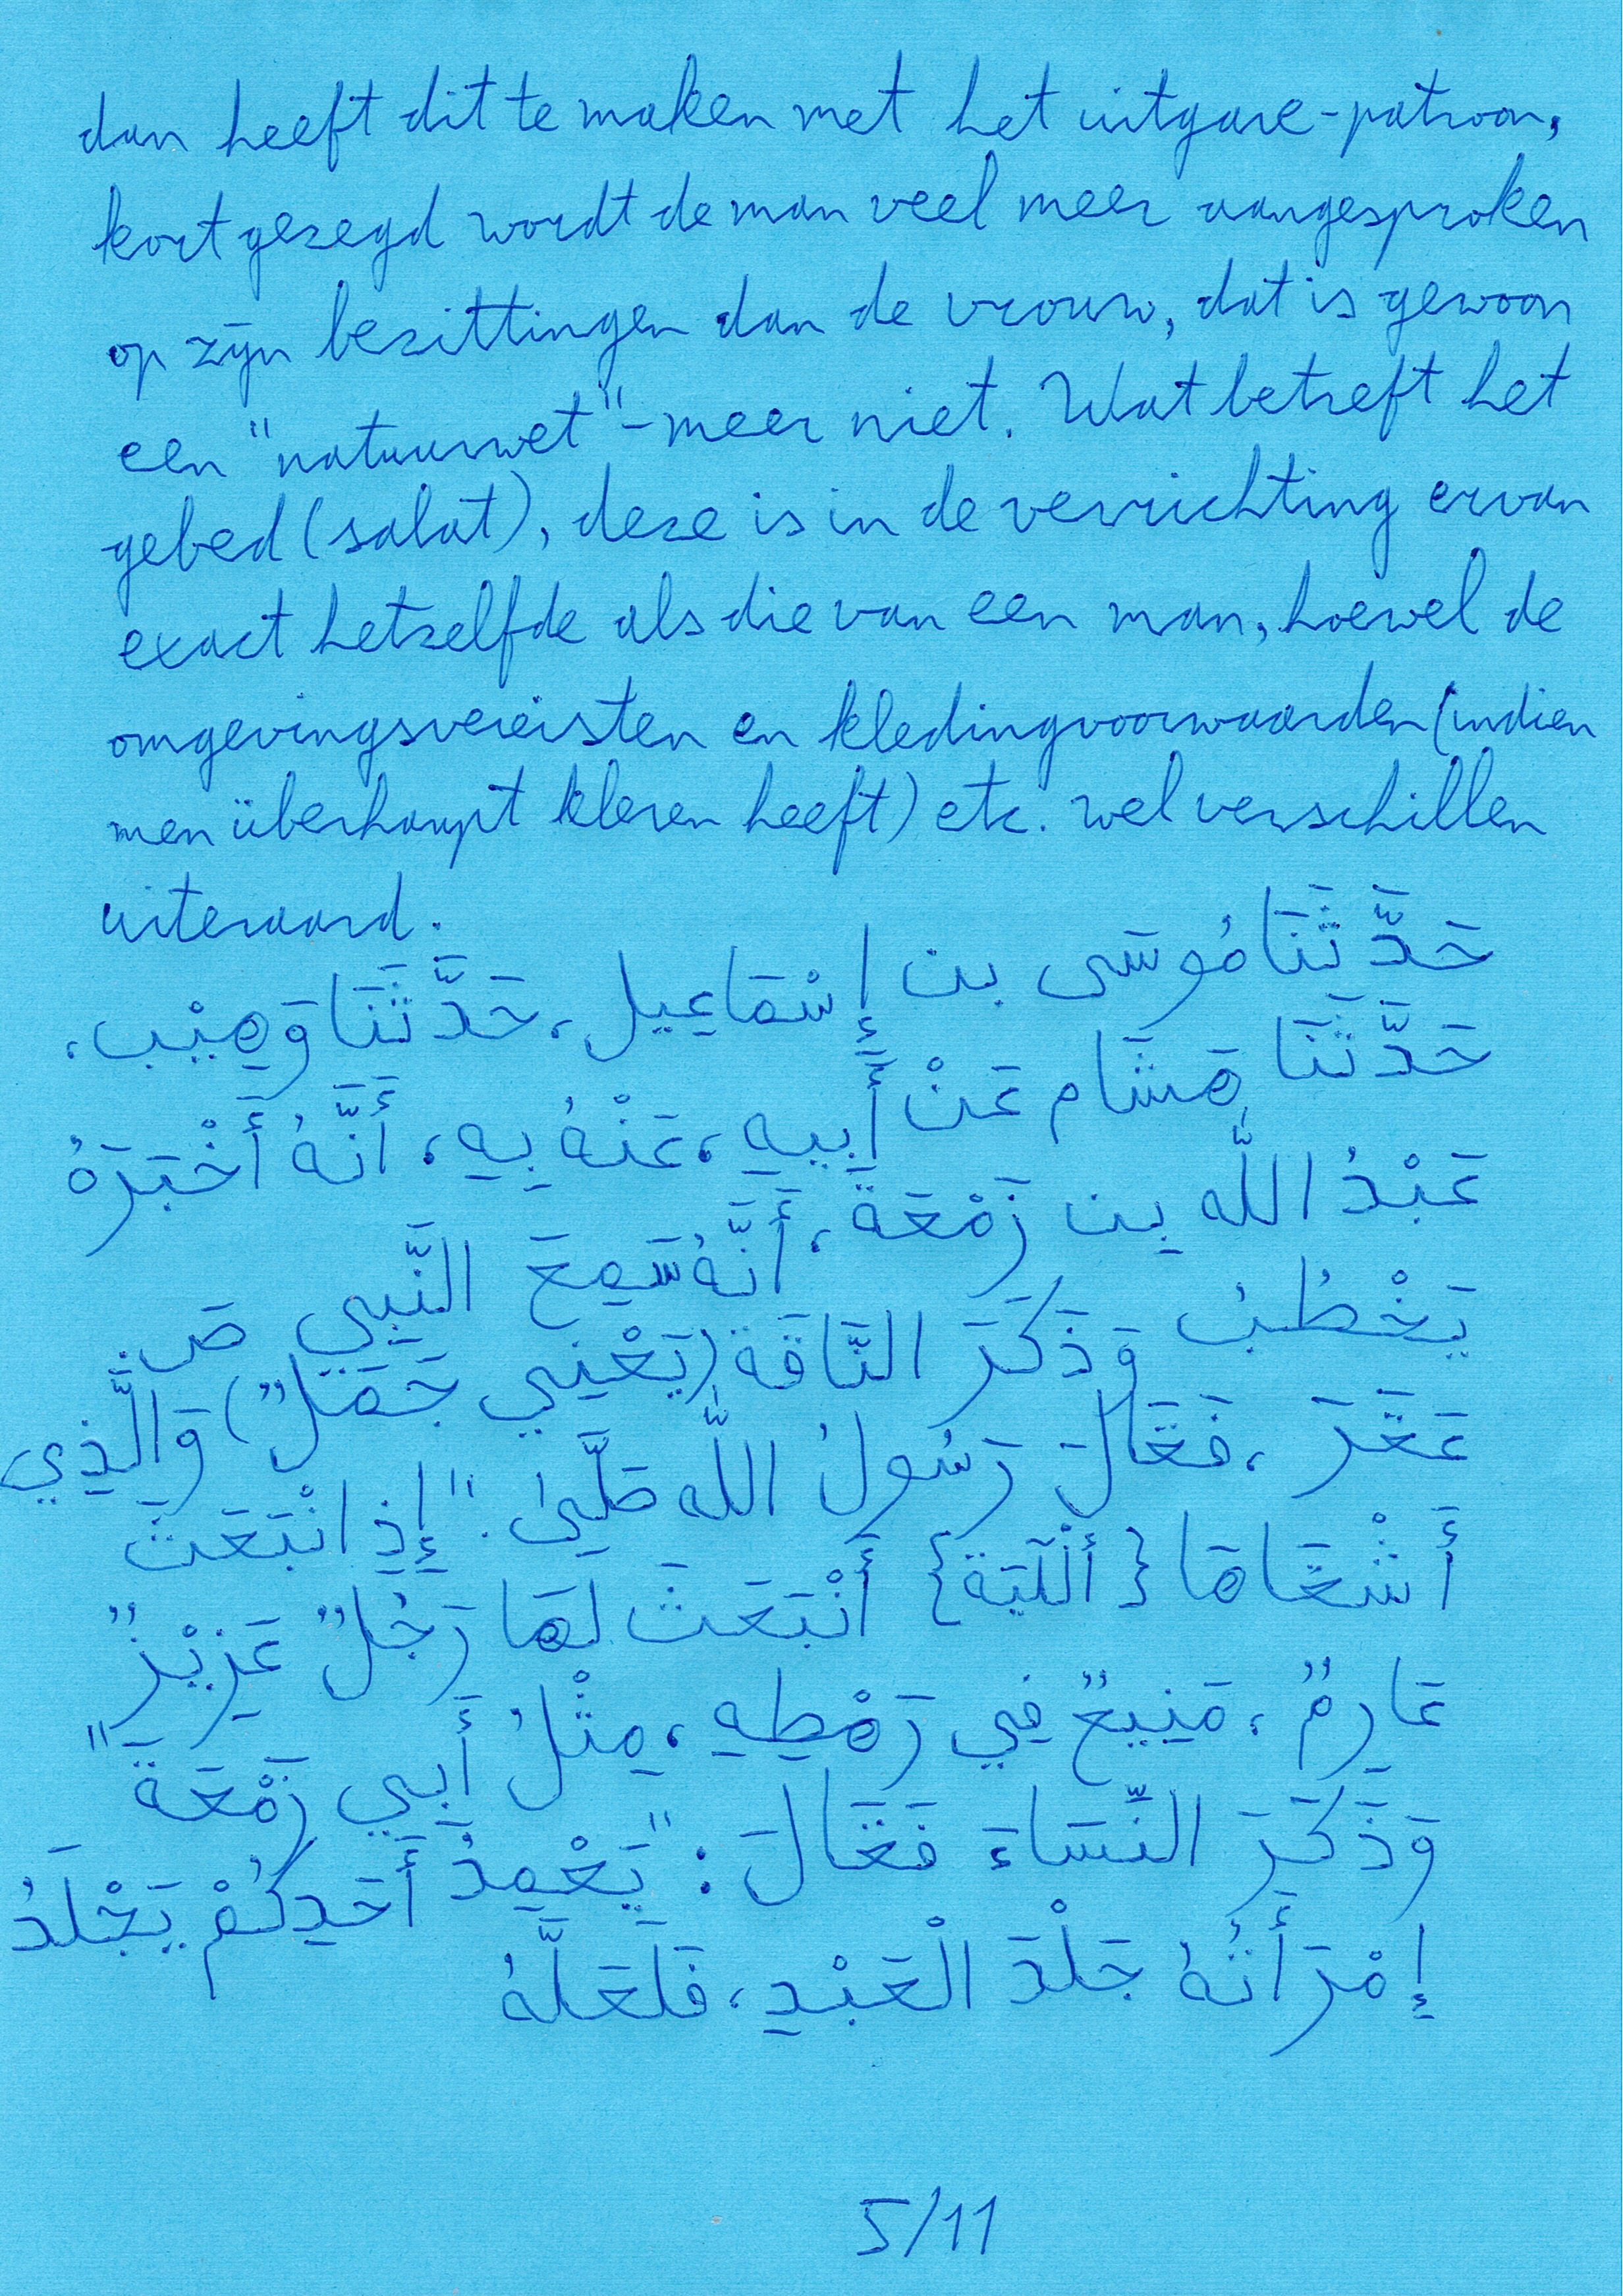 dan heeft dit te maken met het uitgave-patroon,
kort gezegd wordt de man veel meer aangesproken
op zijn bezittingen dan de vrouw, dat is gewoon
een "natuurwet" - meer niet. Wat betreft het
gebed (salat), deze is in de verrichting ervan
exact hetzelfde als die van een man, hoewel de
omgevingsvereisten en kledingvoorwaarden (indien
men überhaupt kleren heeft) etc. wel verschillen
uiteraard.
حَدَّثَنَا مُوسَى بن إِسْمَاعِيل، حَدَّثَنَا وَهِيْب،
حَدَّثَنَا هَشَام عَنْ أَبِيهِ، عَنْهُ بِهِ، أَنَّهُ أَخْبَرَهُ
عَبْدُ اللَّه بِن زَمْعَةَ، أَنَّهُ سَمِعَ النَّبِي ص
يَخْطُبُ وَذَكَرَ النَّاقَة (يَعْنِي جَمَلٌ) وَالَّذِي
عَقَرَ، فَقَالَ رَسُولُ اللَّه صَلَّىٰ: "إِذِ انْبَعَثَ
أَشْقَاهَا {ألْآيَة} أَنْبَعَثَ لَهَا رَجُلٌ عَزِيْزٌ
عَارِمٌ، مَنِيعٌ فِي رَهْطِهِ، مِثْلُ أَبِي زَمْعَةَ"
وَذَكَرَ النِّسَاءَ فَقَالَ: "يَعْمِدُ أَحَدِكُمْ يَجْلَدُ
إِمْرَأَتُهُ جَلْدَ الْعَبْدِ، فَلَعَلَّهُ
5/11